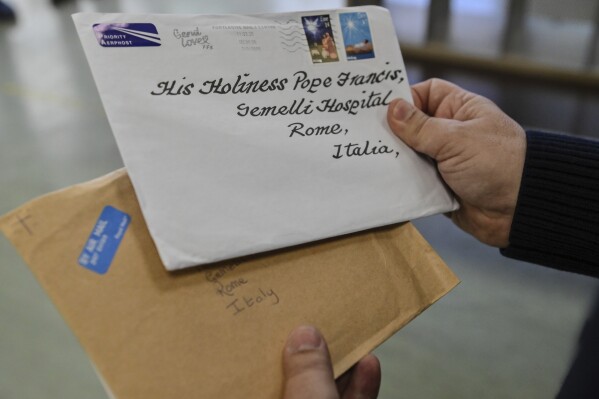 PRIORITY
AEROPHOST
His Holiness Pope Francis,
Gemelli Hospital
Rome,
Italia,
BY AIR MAIL
par avion
Rome
Italy